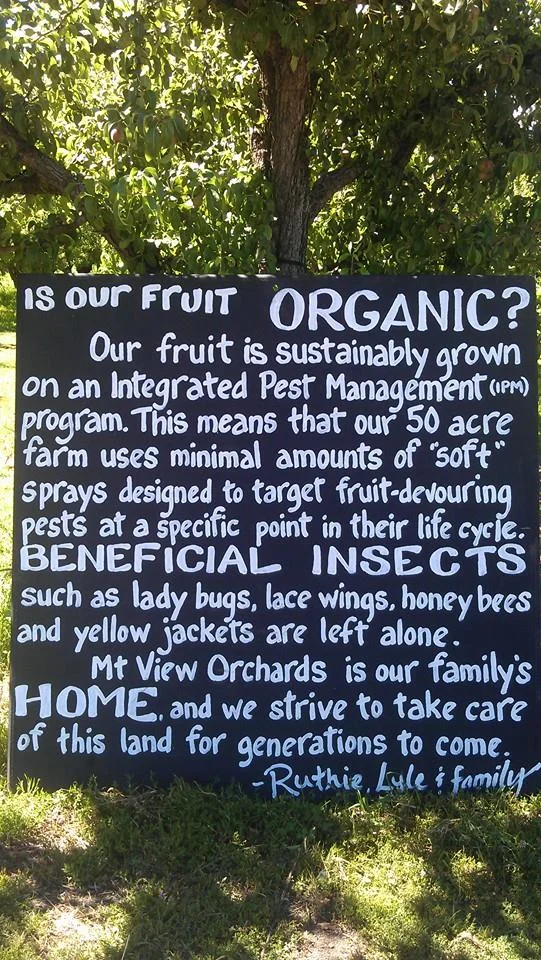 IS OUR FRUIT ORGANIC?
Our fruit is sustainably grown
on an Integrated Pest Management (IPM)
program. This means that our 50 acre
farm uses minimal amounts of "soft"
sprays designed to target fruit-devouring
pests at a specific point in their life cycle.
BENEFICIAL INSECTS
such as lady bugs, lace wings, honey bees
and yellow jackets are left alone.
Mt View Orchards is our family's
HOME, and we strive to take care
of this land for generations to come.
-Ruthie, Lyle & family